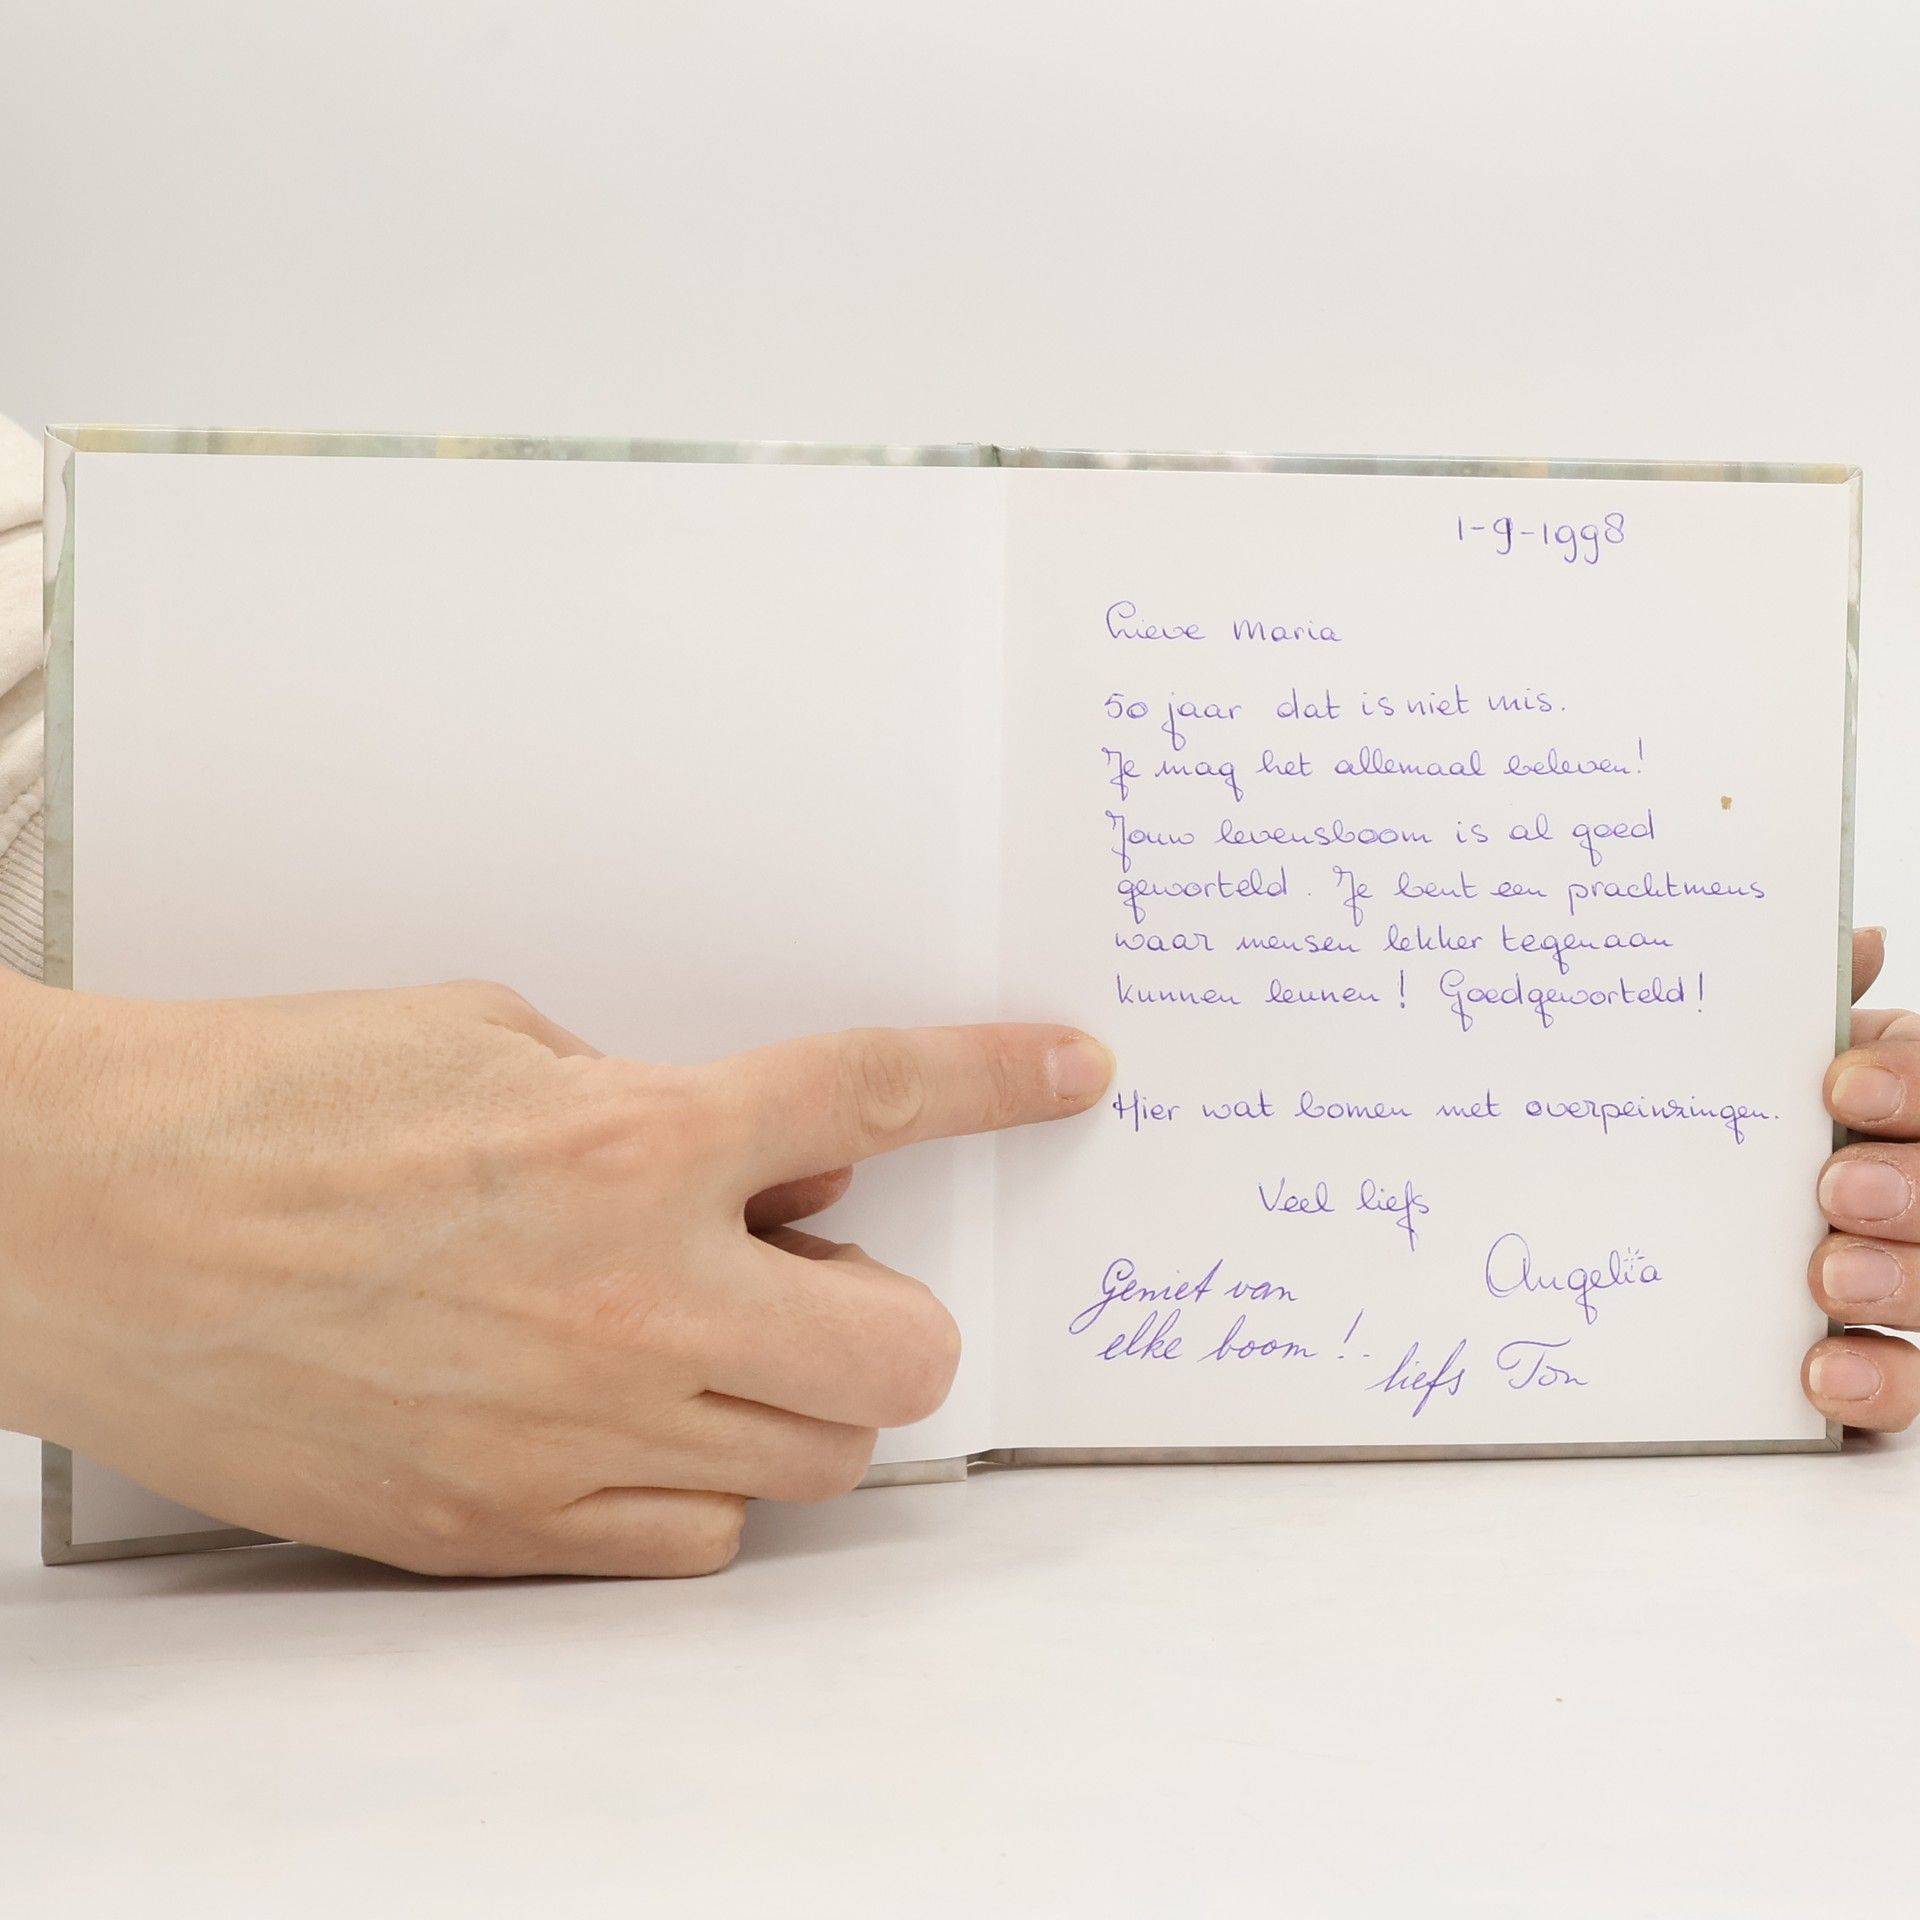 1-9-1998
Lieve Maria
50 jaar dat is niet mis.
Je mag het allemaal beleven!
Jouw levensboom is al goed
geworteld. Je bent een prachtmens
waar mensen lekker tegenaan
kunnen leunen! Goedgeworteld!
Hier wat bomen met overpeinzingen.
Veel liefs
Angelia
Geniet van
elke boom!
liefs Ton